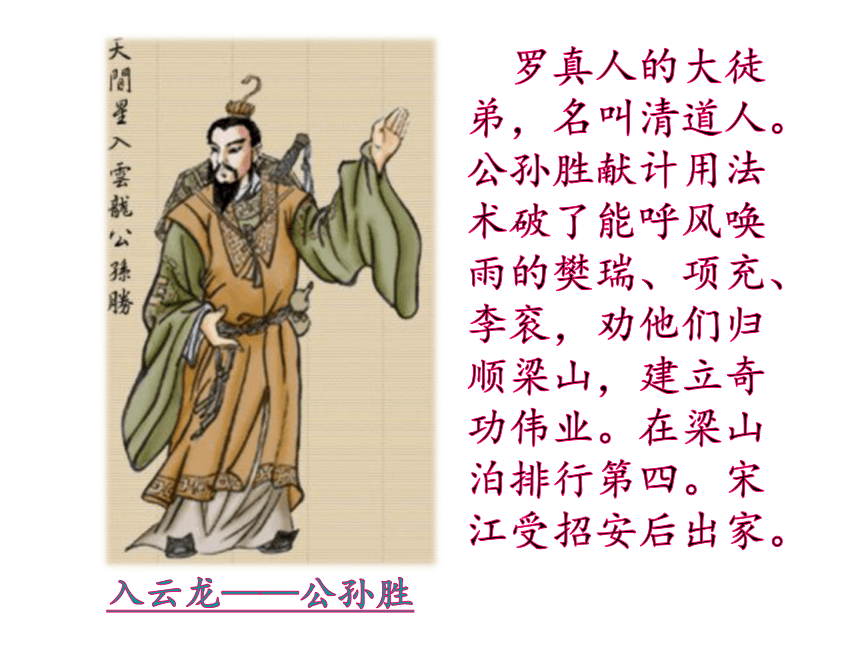 天間星入雲龍公孫勝
罗真人的大徒
弟，名叫清道人。
公孙胜献计用法
术破了能呼风唤
雨的樊瑞、项充、
李衮，劝他们归
顺梁山，建立奇
功伟业。在梁山
泊排行第四。宋
江受招安后出家。
入云龙——公孙胜